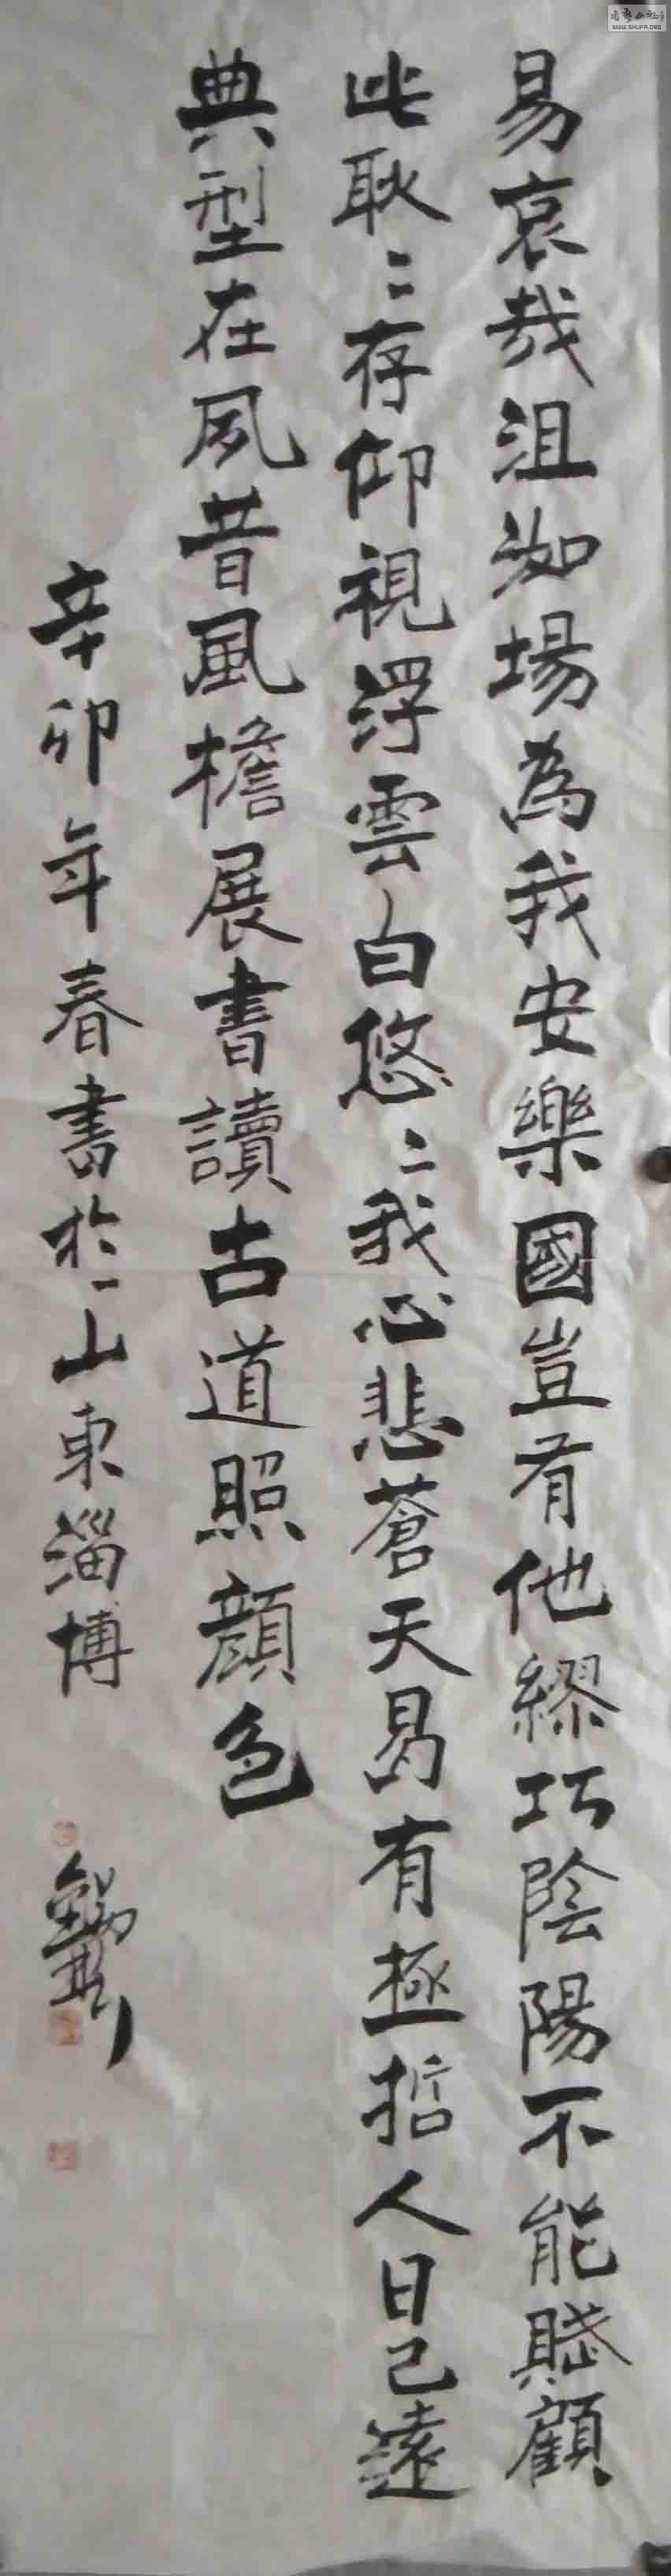 易哀哉沮洳場為我安樂國豈有他繆巧陰陽不能賊顧
此耿〻存仰視浮雲白悠〻我心悲蒼天曷有極哲人日已遠
典型在夙昔風檐展書讀古道照顔色
辛卯年春書於山東淄博
WWW.SHUFA.ORG